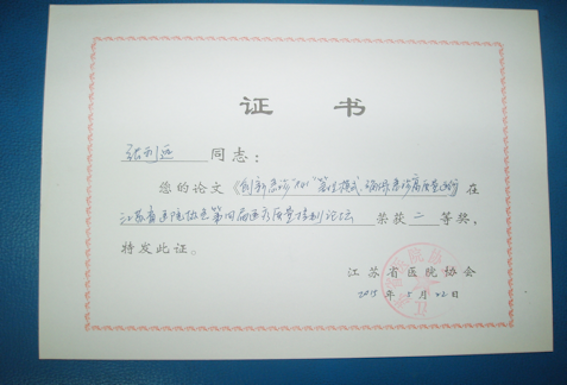 证 书
张利远 同志：
您的论文《创新急诊“ ”管理模式、确保急诊高质量运行》在
江苏省医院协会第四届医疗质量控制论坛 荣获 二 等奖，
特发此证。
江苏省医院协会
2015 年 5 月 22 日